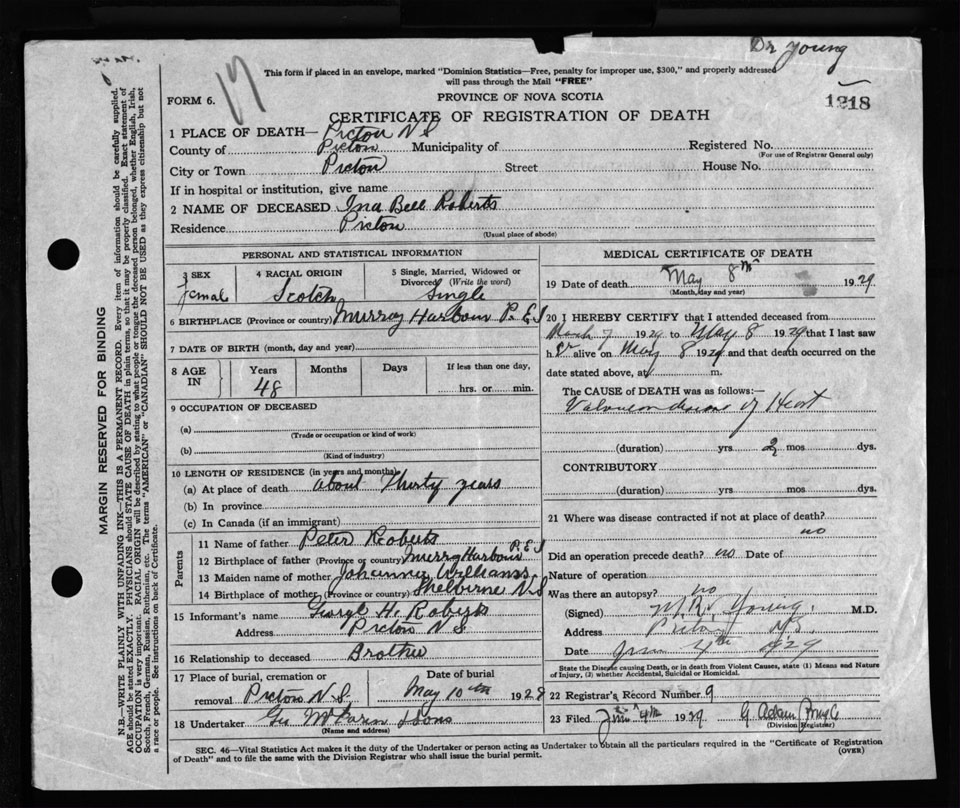 Dr Young
This form if placed in an envelope, marked "Dominion Statistics—Free, penalty for improper use, $300," and properly addressed
will pass through the Mail "FREE"
FORM 6.
19
PROVINCE OF NOVA SCOTIA
1218
CERTIFICATE OF REGISTRATION OF DEATH
1 PLACE OF DEATH— Pictou N S
County of Pictou Municipality of Registered No.
(For use of Registrar General only)
City or Town Pictou Street House No.
If in hospital or institution, give name
2 NAME OF DECEASED Ina Bell Roberts
Residence Pictou
(Usual place of abode)
PERSONAL AND STATISTICAL INFORMATION
3 SEX
femal
4 RACIAL ORIGIN
Scotch
5 Single, Married, Widowed or
Divorced (Write the word)
Single
6 BIRTHPLACE (Province or country) Murray Harbour P. E I
7 DATE OF BIRTH (month, day and year)
8 AGE
IN
Years
48
Months
Days
If less than one day,
hrs. or min.
9 OCCUPATION OF DECEASED
(a)
(Trade or occupation or kind of work)
(b)
(Kind of industry)
10 LENGTH OF RESIDENCE (in years and months)
(a) At place of death about Thirty years
(b) In province
(c) In Canada (if an immigrant)
Parents
11 Name of father Peter Roberts
12 Birthplace of father (Province or country) Murry Harbour P. E I
13 Maiden name of mother Johanna Williams
14 Birthplace of mother (Province or country) Shelburne N. S
15 Informant's name George H. Roberts
Address Pictou N. S.
16 Relationship to deceased Brother
17 Place of burial, cremation or
removal Pictou N. S.
Date of burial
May 10th 1928
18 Undertaker Geo McLaren & Sons
(Name and address)
MEDICAL CERTIFICATE OF DEATH
19 Date of death May 8th 1929
(Month, day and year)
20 I HEREBY CERTIFY that I attended deceased from
March 7 1929 to May 8 1929 that I last saw
her alive on May 8 1929 and that death occurred on the
date stated above, at m.
The CAUSE of DEATH was as follows:—
Valvular disease of Heart
(duration) yrs 2 mos dys.
CONTRIBUTORY
(duration) yrs mos dys.
21 Where was disease contracted if not at place of death?
no
Did an operation precede death? no Date of
Nature of operation
Was there an autopsy? no
(Signed) Young M.D.
Address Pictou NS
Date June 4th 1929
State the Disease causing Death, or in death from Violent Causes, state (1) Means and Nature
of Injury, (2) whether Accidental, Suicidal or Homicidal.
22 Registrar's Record Number 9
23 Filed June 4th 1929 G. Adam
(Division Registrar)
SEC. 46—Vital Statistics Act makes it the duty of the Undertaker or person acting as Undertaker to obtain all the particulars required in the "Certificate of Registration
of Death" and to file the same with the Division Registrar who shall issue the burial permit.
(OVER)
MARGIN RESERVED FOR BINDING
N.B.—WRITE PLAINLY WITH UNFADING INK—THIS IS A PERMANENT RECORD. Every item of information should be carefully supplied.
AGE should be stated EXACTLY. PHYSICIANS should STATE CAUSE OF DEATH in plain terms, so that it may be properly classified. Exact statement of
OCCUPATION is very important. RACIAL ORIGIN will be described by stating to what people or tongue the deceased person belonged, whether English, Irish,
Scotch, French, German, Russian, Ruthenian, etc. The terms "AMERICAN" or "CANADIAN" SHOULD NOT BE USED as they express citizenship but not
a race or people. See instructions on back of Certificate.